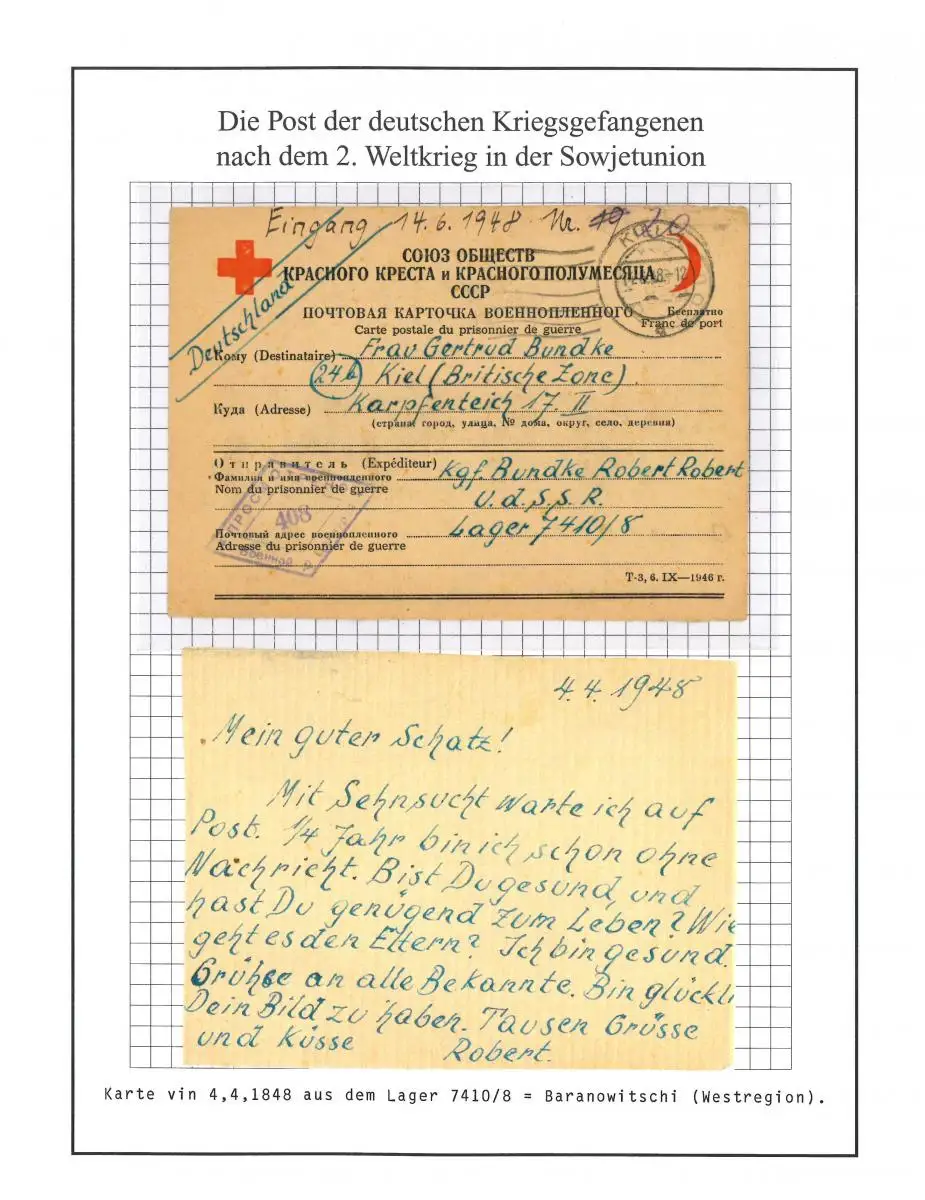 Die Post der deutschen Kriegsgefangenen
nach dem 2. Weltkrieg in der Sowjetunion
Eingang 14.6.1948 Nr. 19 20
СОЮЗ ОБЩЕСТВ
КРАСНОГО КРЕСТА и КРАСНОГО ПОЛУМЕСЯЦА
СССР
ПОЧТОВАЯ КАРТОЧКА ВОЕННОПЛЕННОГО
Бесплатно
Carte postale du prisonnier de guerre
Franc de port
Deutschland
Кому (Destinataire) Frau Gertrud Bundke
24b Kiel (Britische Zone)
Куда (Adresse) Karpfenteich 17. II
(страна, город, улица, № дома, округ, село, деревня)
Отправитель (Expéditeur)
Фамилия и имя военнопленного Kgf. Bundke Robert Robert
Nom du prisonnier de guerre
U.d.S.S.R.
408
Почтовый адрес военнопленного Lager 7410/8
Adresse du prisonnier de guerre
Т-3, 6. IX—1946 г.
4.4.1948
Mein guter Schatz!
Mit Sehnsucht warte ich auf
Post. 1/4 Jahr bin ich schon ohne
Nachricht. Bist Du gesund, und
hast Du genügend zum Leben? Wie
geht es den Eltern? Ich bin gesund.
Grühse an alle Bekannte. Bin glückli
Dein Bild zu haben. Tausen Grüsse
und Küsse Robert.
Karte vin 4,4,1848 aus dem Lager 7410/8 = Baranowitschi (Westregion).